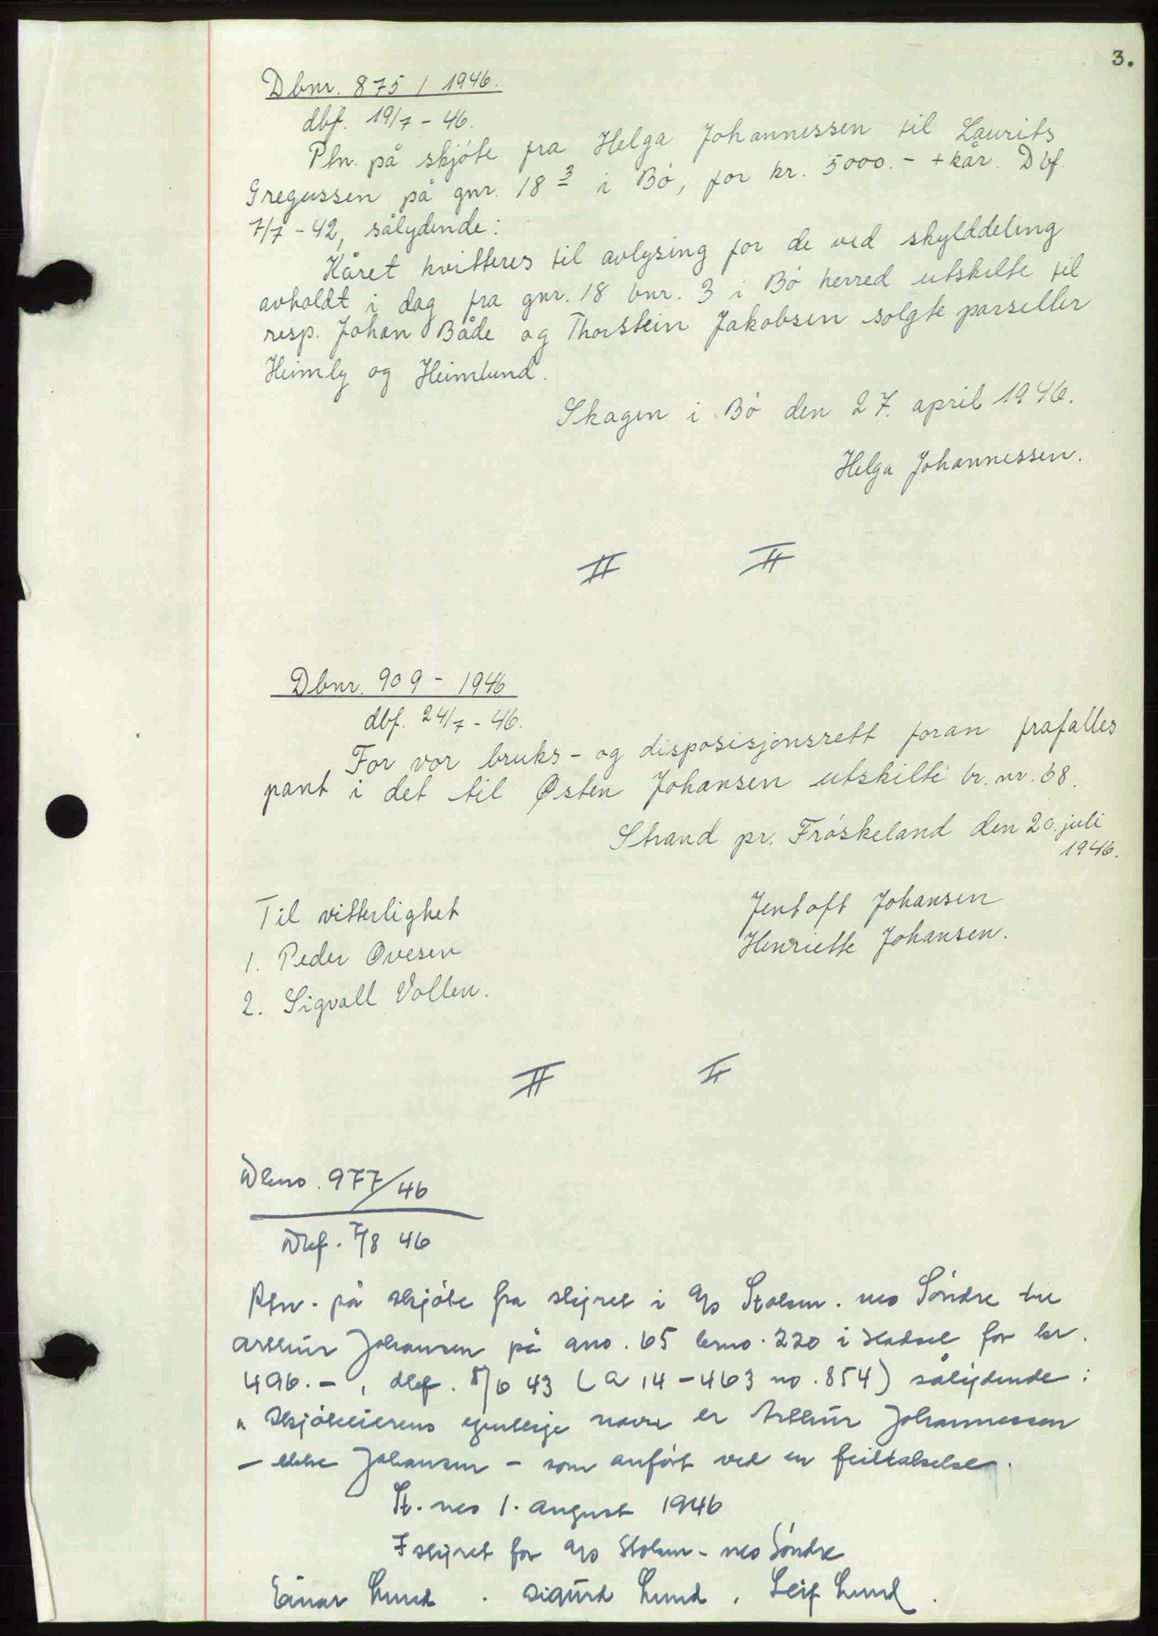 3.
Dbnr. 875 / 1946.
dbf. 19/7 - 46.
Ptn. på skjöte fra Helga Johannessen til Laurits
Gregussen på gnr. 18 3 i Bö, for kr. 5000.- + kår. Dbf.
7/7 - 42, sålydende:
Kåret kvitteres til avlysing for de ved skylddeling
avholdt i dag fra gnr. 18 bnr. 3 i Bö herred utskilte til
resp. Johan Både og Thorstein Jakobsen solgte parseller
Heimly og Heimlund.
Skagen i Bö den 27. april 1946.
Helga Johannessen.
Dbnr. 909 - 1946
dbf. 24/7 - 46.
For vor bruks- og disposisjonsrett foran frafalles
pant i det til Østen Johansen utskilte br. nr. 68.
Strand pr. Fröskeland den 20. juli
1946.
Til vitterlighet
Jentoft Johansen
1. Peder Ovesen
Henriette Johansen.
2. Sigvall Vollen.
Dbno. 977/46
Dbf. 7/8 46
Ptn. på skjöte fra styret i A/s Stolsm. nes Söndre til
Arthur Johansen på gno. 65 brno. 220 i Hadsel for kr.
496.-, dbf. 8/6 43 (a 14-463 no. 854) sålydende:
" Skjöteeierens egentlige navn er Arthur Johannessen
- ikke Johansen - som anfört ved en feiltakelse.
St. nes 1. august 1946
I styret for A/s Stolsm- nes Söndre
Einar Lund . Sigurd Lund . Leif Lund .